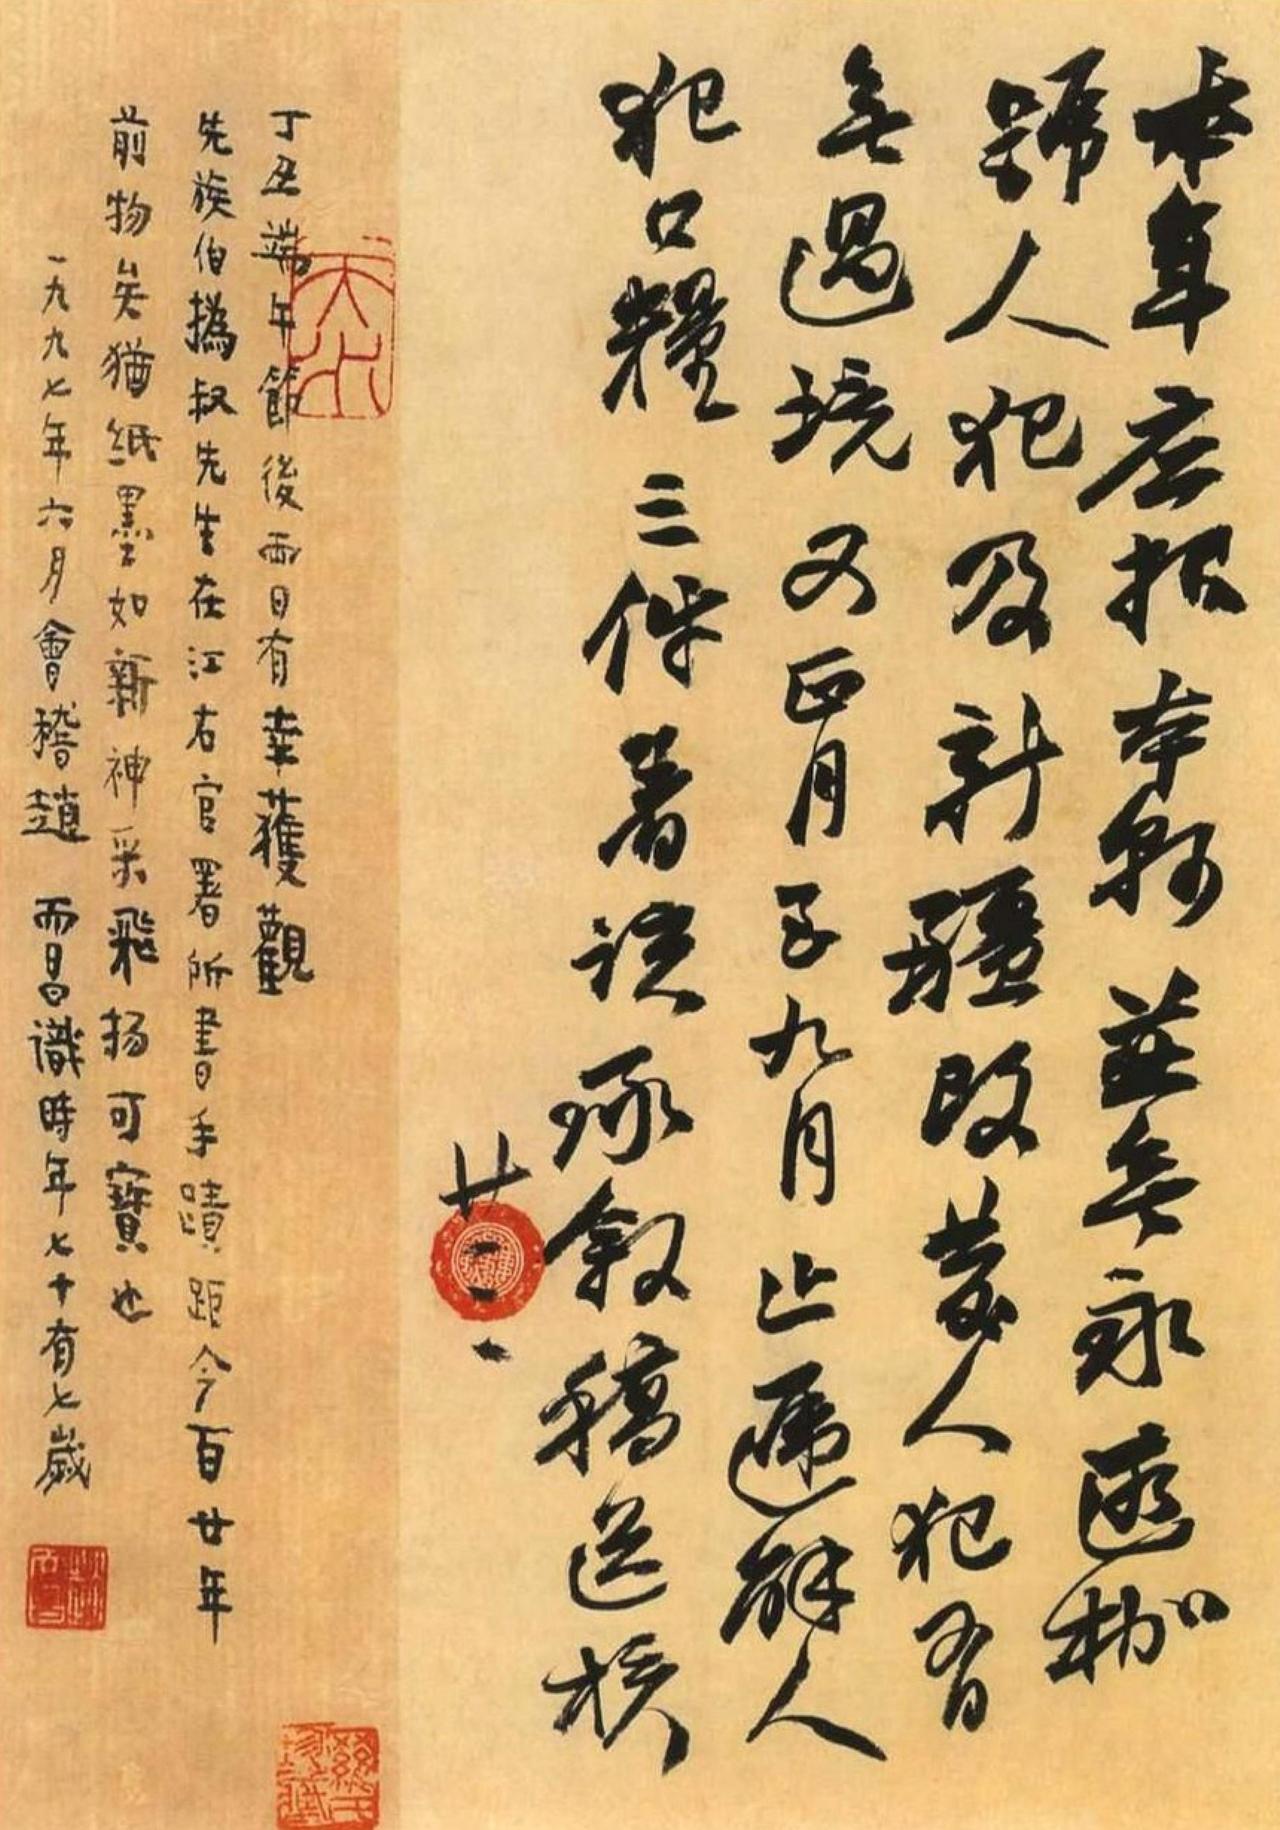 本年应报本县並無永遠枷
號人犯及新疆改發人犯有
無過境又正月至九月止遞解人
犯口糧三件著該承敘稿送核
廿二
丁丑端午節後兩日有幸獲觀
先族伯撝叔先生在江右官署所書手蹟距今百廿年
前物矣猶紙墨如新神采飛揚可寶也
一九九七年六月會稽趙而昌識時年七十有七歲